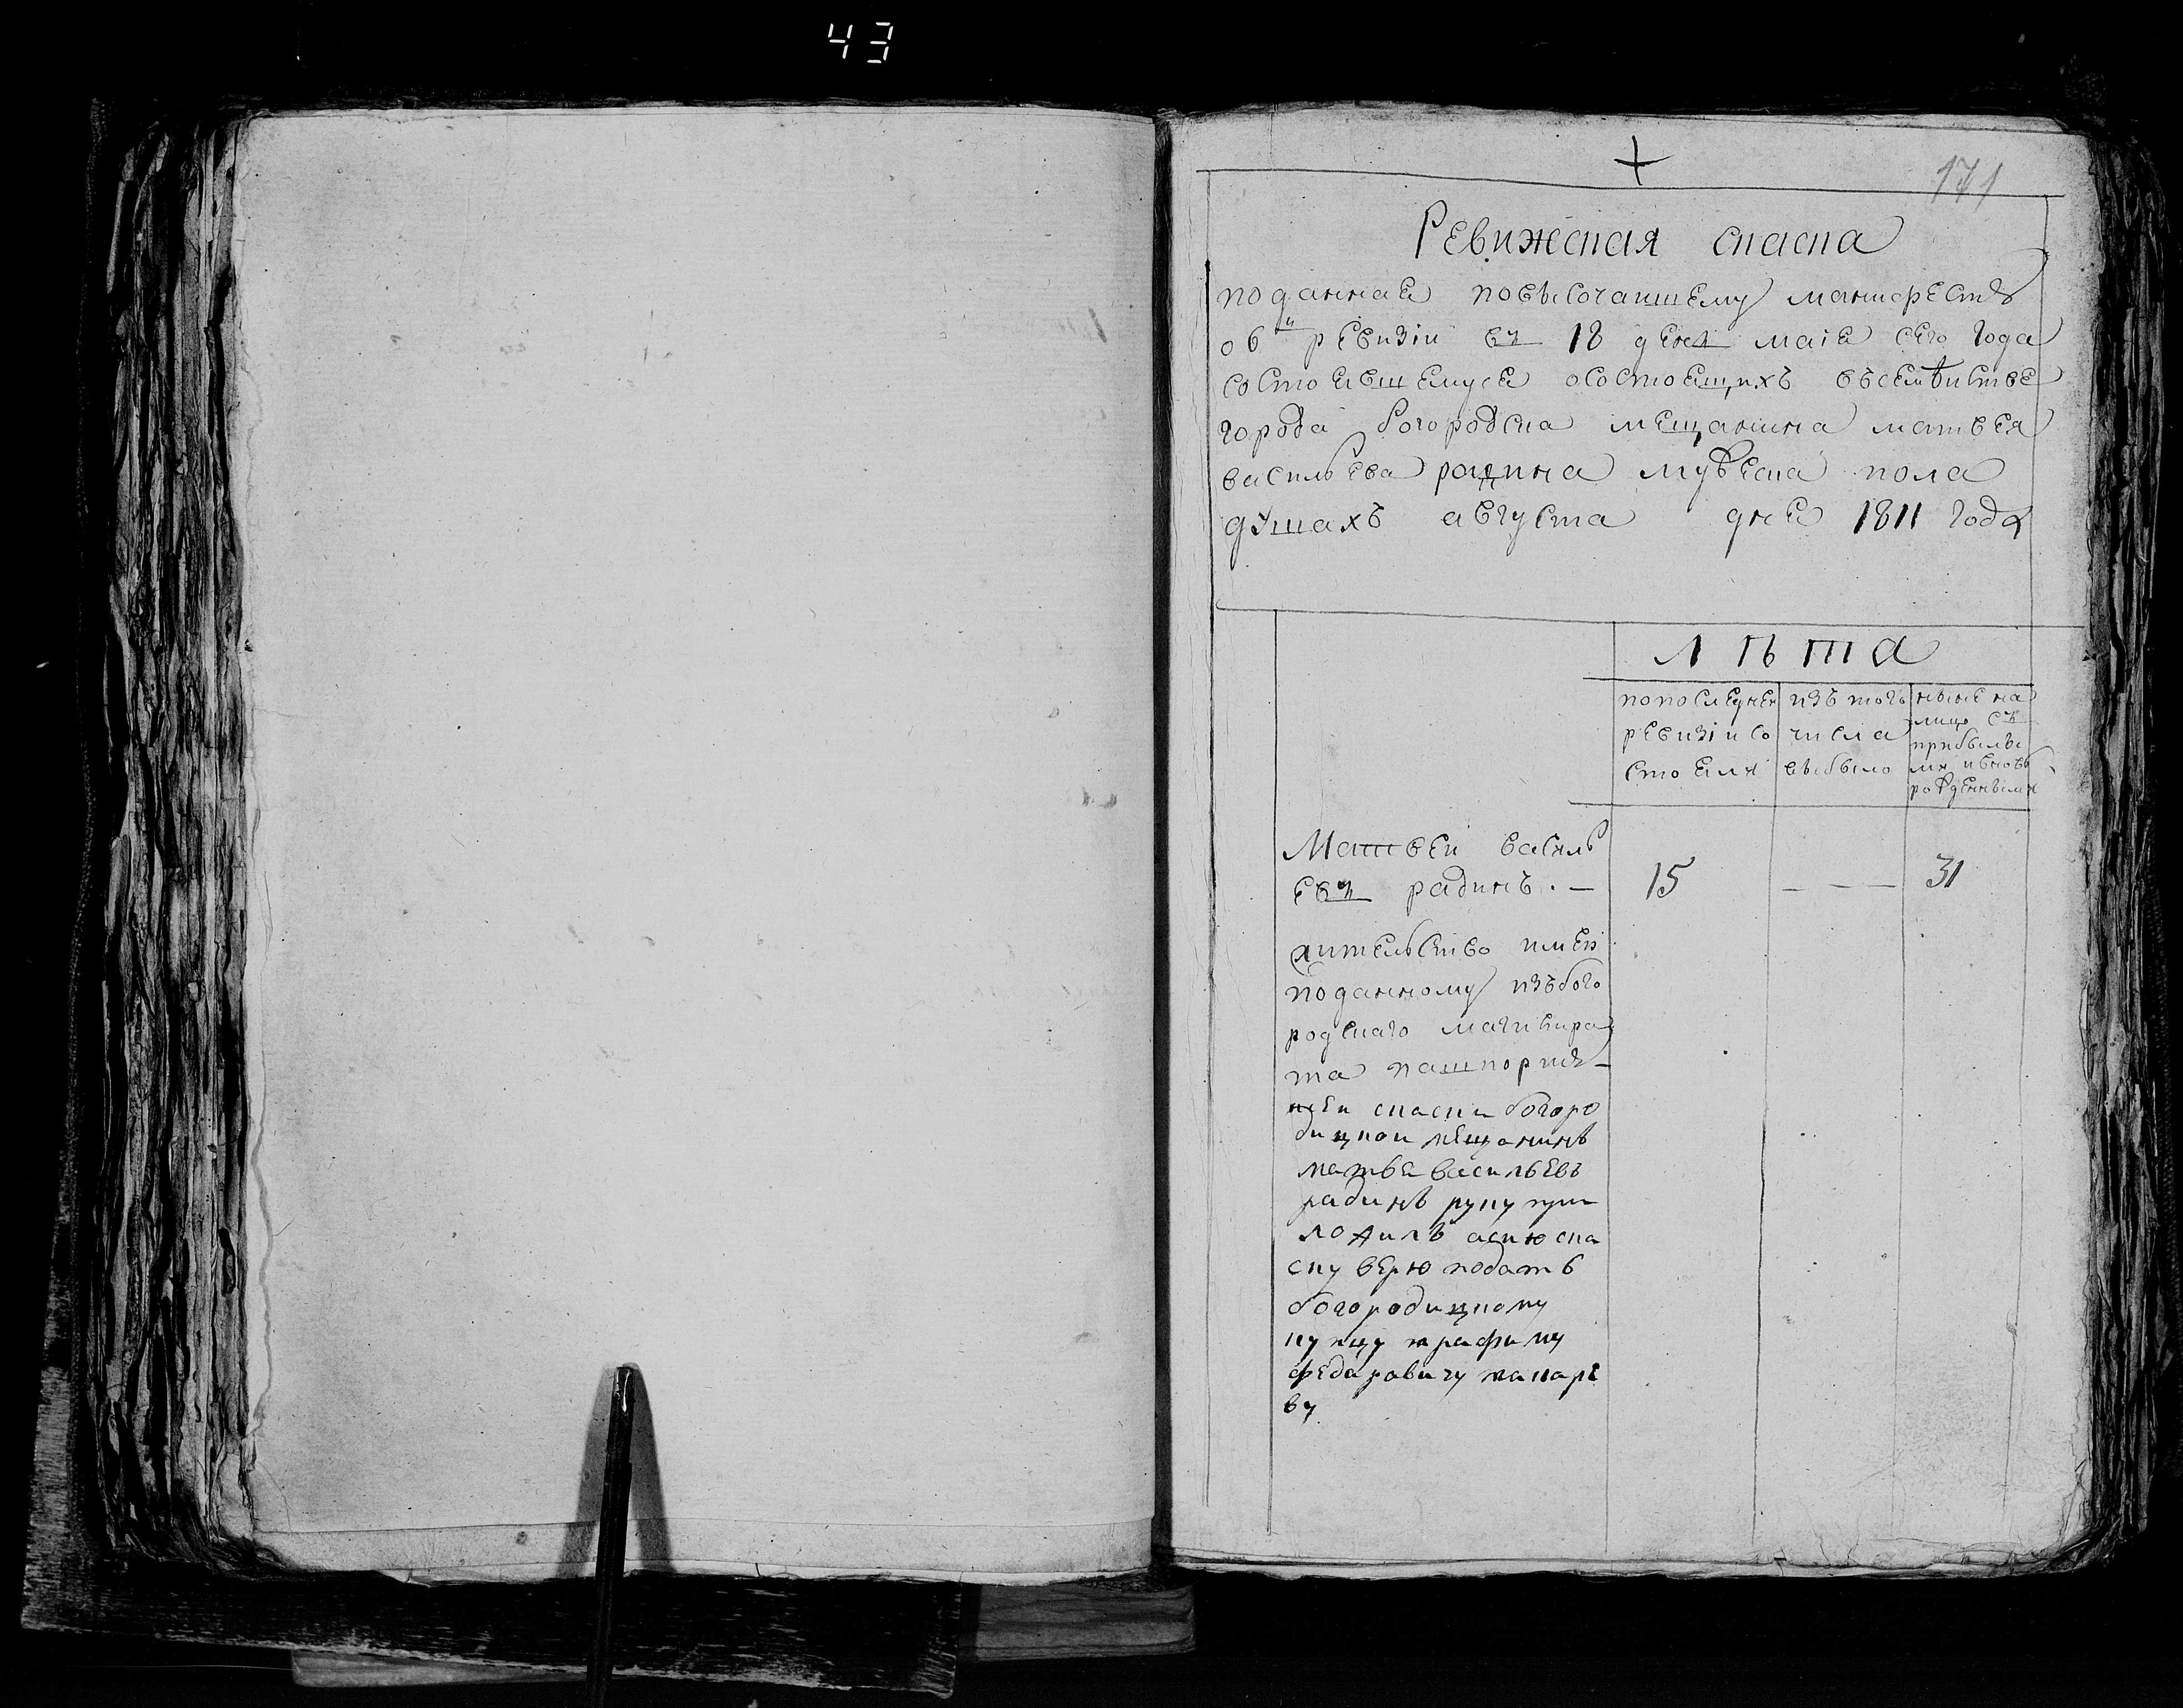 43
171
Ревижская скаска
поданная повысочаишему манифесту
о 6й ревизiи въ 18 день маiя сего года
состоявшемуся осостоящихъ въсемѣистве
города богородска мещанина матвея
васильева радина мужеска пола
душахъ августа дня 1811 года
лѣта
попоследнеи
ревизiи со
стояли
изъ того
числа
выбыло
ныне на
лицо съ
прибылы
ми ивновь
рожденными
Матвеи василь
евъ радинъ . —
15
— — —
31
жительство имеи
поданному избого
родскаго магистра
та пашпорту —
скаски богоро
дицкои мещанинъ
матвеи васильевъ
радинъ руку при
ложилъ асию ска
ску верю подать
богородицкому
купцу трафиму
федаравичу макаре
ву